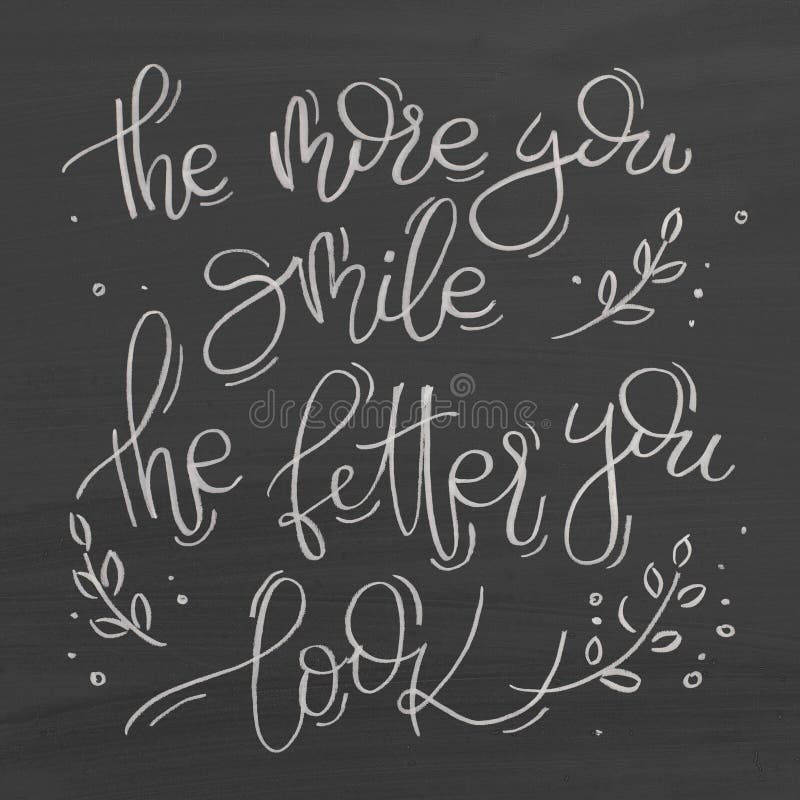 the more you
smile
the fetter you
look
dreamstime